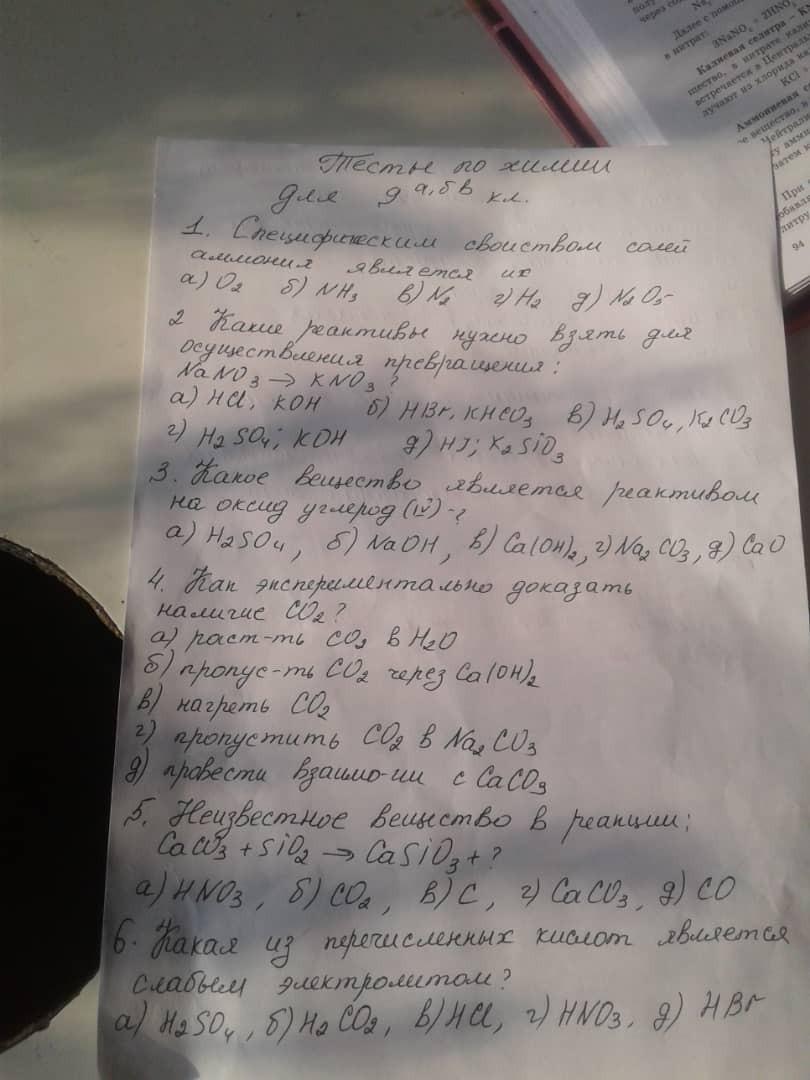 Тесты по химии
для 9 а,б в кл.
1. Специфическим свойством солей
аммония является их
а) O₂ б) NH₃ в) N₂ г) H₂ д) N₂O₅
2 Какие реактивы нужно взять для
осуществления превращения:
NaNO₃ → KNO₃?
а) HCl; KOH б) HBr, KHCO₃ в) H₂SO₄, K₂CO₃
г) H₂SO₄; KOH д) HJ; K₂SiO₃
3. Какое вещество является реактивом
на оксид углерод (IV) - ?
а) H₂SO₄, б) NaOH, в) Ca(OH)₂, г) Na₂CO₃, д) CaO
4. Как экспериментально доказать
наличие CO₂?
а) раст-ть CO₂ в H₂O
б) пропус-ть CO₂ через Ca(OH)₂
в) нагреть CO₂
г) пропустить CO₂ в Na₂CO₃
д) провести взаимо-ии с CaCO₃
5. Неизвестное вещество в реакции:
CaCO₃ + SiO₂ → CaSiO₃ + ?
а) HNO₃, б) CO₂, в) C, г) CaCO₃, д) CO
6. Какая из перечисленных кислот является
слабым электролитом?
а) H₂SO₄, б) H₂CO₂, в) HCl, г) HNO₃. д) HBr
Далее с помощ
в нитрат:
Калиевая селитра – К
щество, в нитрате кали
встречается в Централь
лучают из хлорида ка
KCl +
Аммониевая се
е вещество,
Нейтрали
у амми
затем к
При
обавля
литру
94